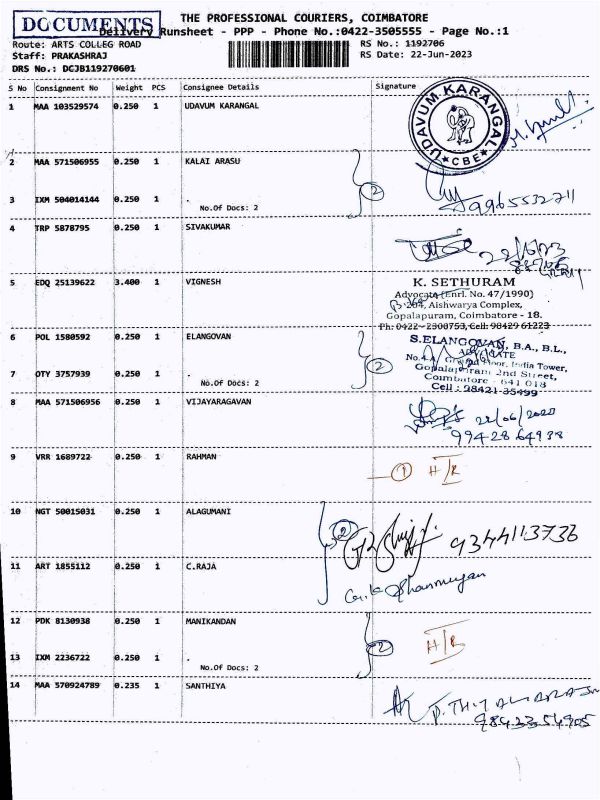 DOCUMENTS
THE PROFESSIONAL COURIERS, COIMBATORE
Delivery Runsheet - PPP - Phone No.:0422-3505555 - Page No.:1
Route: ARTS COLLEG ROAD RS No.: 1192706
Staff: PRAKASHRAJ RS Date: 22-Jun-2023
DRS No.: DCJB119270601
S No Consignment No Weight PCS Consignee Details Signature
1 MAA 103529574 0.250 1 UDAVUM KARANGAL
UDAVUM KARANGAL
★ CBE ★
2 MAA 571506955 0.250 1 KALAI ARASU
2
3 IXM 504014144 0.250 1 .
9965532711
No.Of Docs: 2
4 TRP 5878795 0.250 1 SIVAKUMAR
22/6/23
5 EDQ 25139622 3.400 1 VIGNESH
K. SETHURAM
Advocate (Enrl. No. 47/1990)
204, Aishwarya Complex,
Gopalapuram, Coimbatore - 18.
Ph: 0422-2300753, Cell: 98429 61223
6 POL 1580592 0.250 1 ELANGOVAN
S.ELANGOVAN, B.A., B.L.,
ADVOCATE
2
No.4 A, Ground Floor, India Tower,
7 OTY 3757939 0.250 1 .
Gopalapuram 2nd Street,
Coimbatore - 641 018
No.Of Docs: 2
Cell : 98421-35499
8 MAA 571506956 0.250 1 VIJAYARAGAVAN
22/06/2023
99428 64938
9 VRR 1689722 0.250 1 RAHMAN
1 H/R
10 NGT 50015031 0.250 1 ALAGUMANI
2
9344113736
11 ART 1855112 0.250 1 C.RAJA
Shanmugan
12 PDK 8130938 0.250 1 MANIKANDAN
2 H/R
13 IXM 2236722 0.250 1 .
No.Of Docs: 2
14 MAA 570924789 0.235 1 SANTHIYA
P. THIYAGARAJN
9842354905